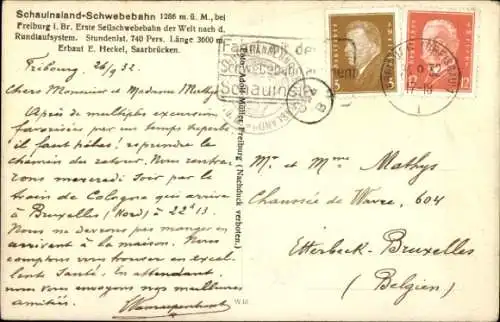 Schauinsland-Schwebebahn 1286 m ü. M., bei
Freiburg i. Br. Erste Seilschwebebahn der Welt nach d.
Rundlaufsystem. Stundenlst. 740 Pers. Länge 3600 m
Erbaut E. Heckel, Saarbrücken.
Fribourg 26/9 32.
Chers Monsieur et Madame Mathys
Après de multiples excursions
favorisées par un temps superbe
il faut hélas! reprendre le
chemin du retour. Nous rentre-
rons mercredi soir par le
train de Cologne qui arrive
à Bruxelles (Nord) à 22h13.
Nous ne devons pas manger en
arrivant à la maison. Nous
comptons vous trouver en excel-
lente santé. En attendant,
nous vous envoyons nos meilleures
amitiés.
Müller, Freiburg (Nachdruck verboten.)
W 18
Schwebebahn
Schauinsland
DEUTSCHES REICH
5
DEUTSCHES REICH
12
Mr et Mme Mathys
Chaussée de Wavre, 604
Etterbeek-Bruxelles
(Belgien)